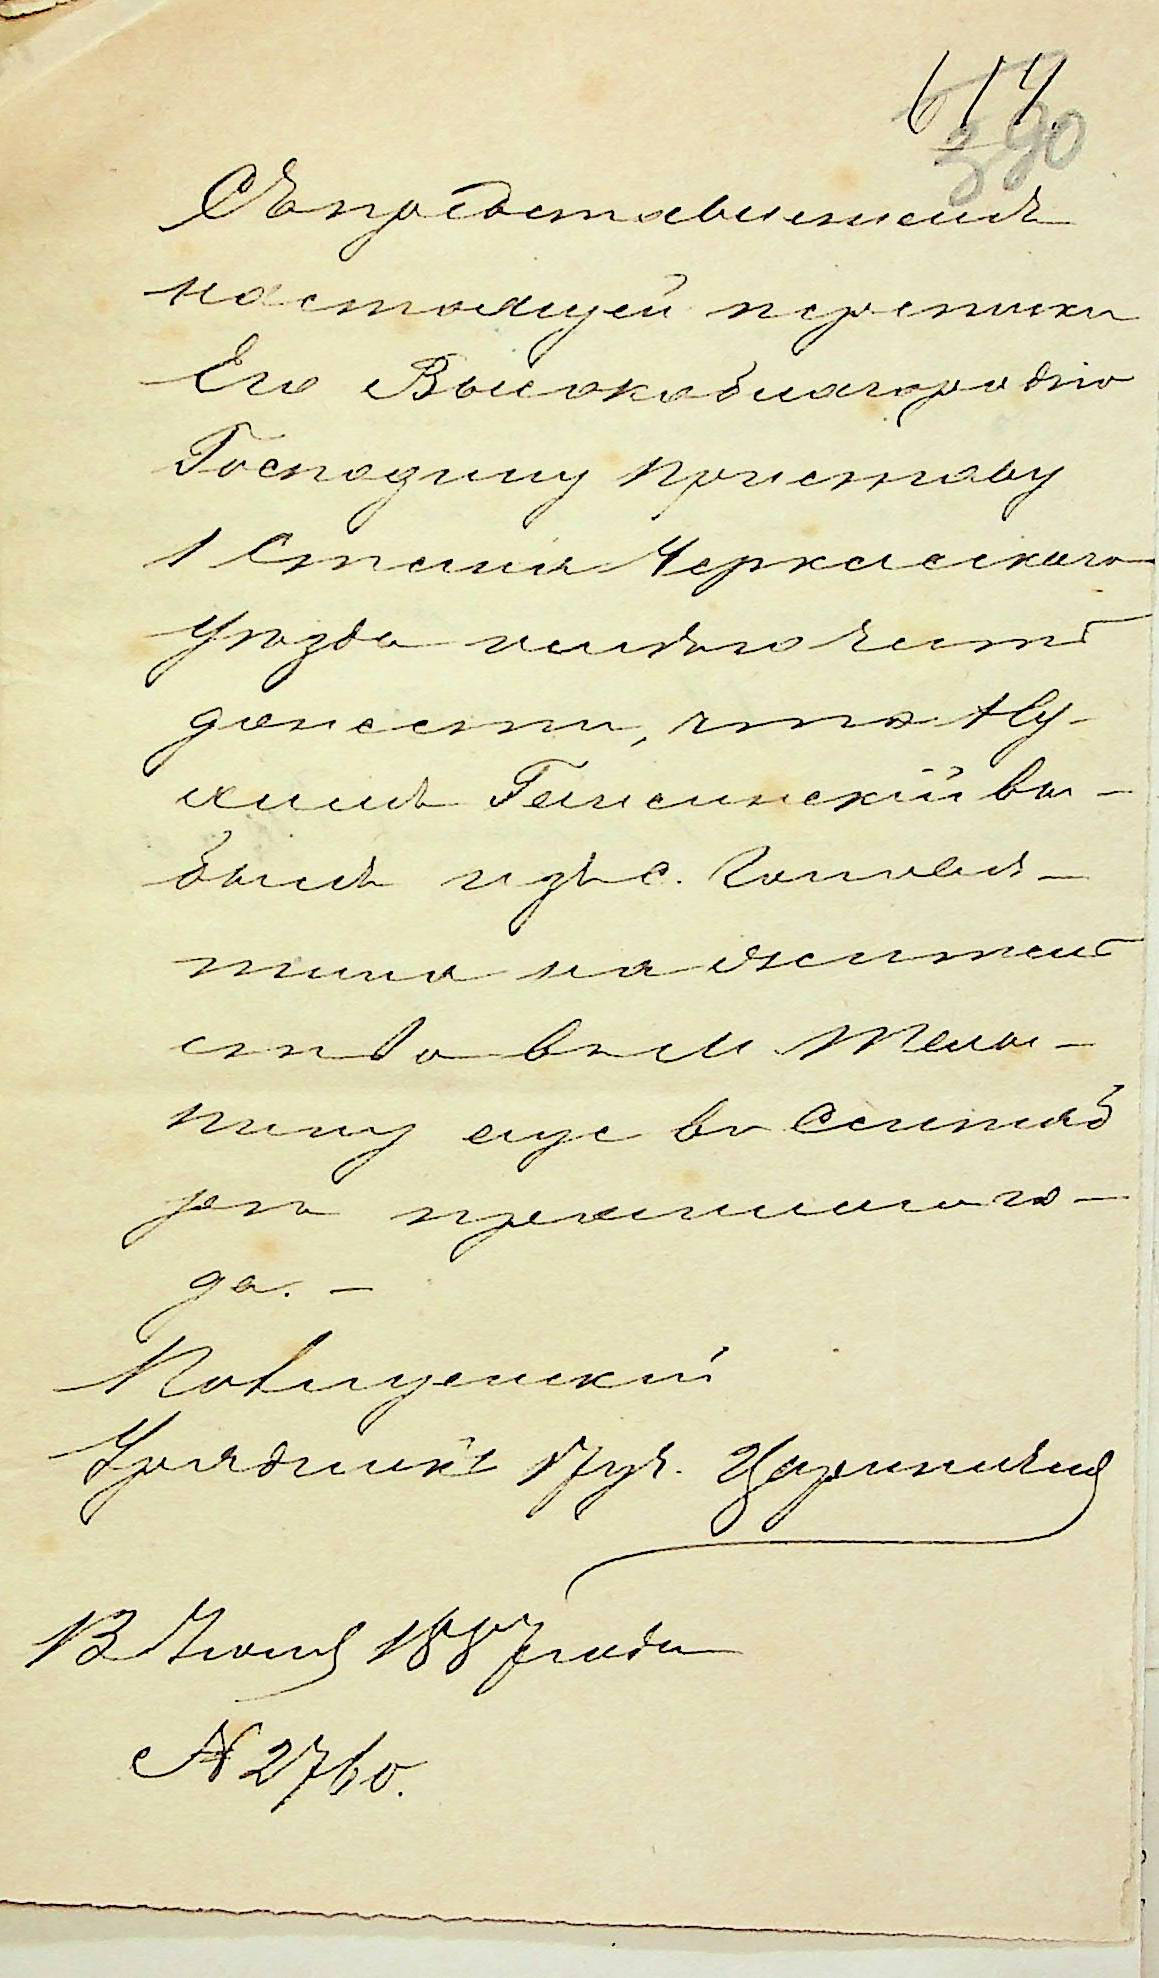 614
390
Съ представленіемъ
настоящей переписки
Его Высокоблагородію
Господину Приставу
1 Стана Черкасскаго
Уѣзда имѣю честь
донести, что Ну-
химъ Гельсинскій вы-
былъ изъ с.
на житель
ство въ м Мель-
ницу еще въ Сентяб
рѣ прошлаго го-
да. —
Урядникъ
13 Іюля 1887 года
№ 2760.